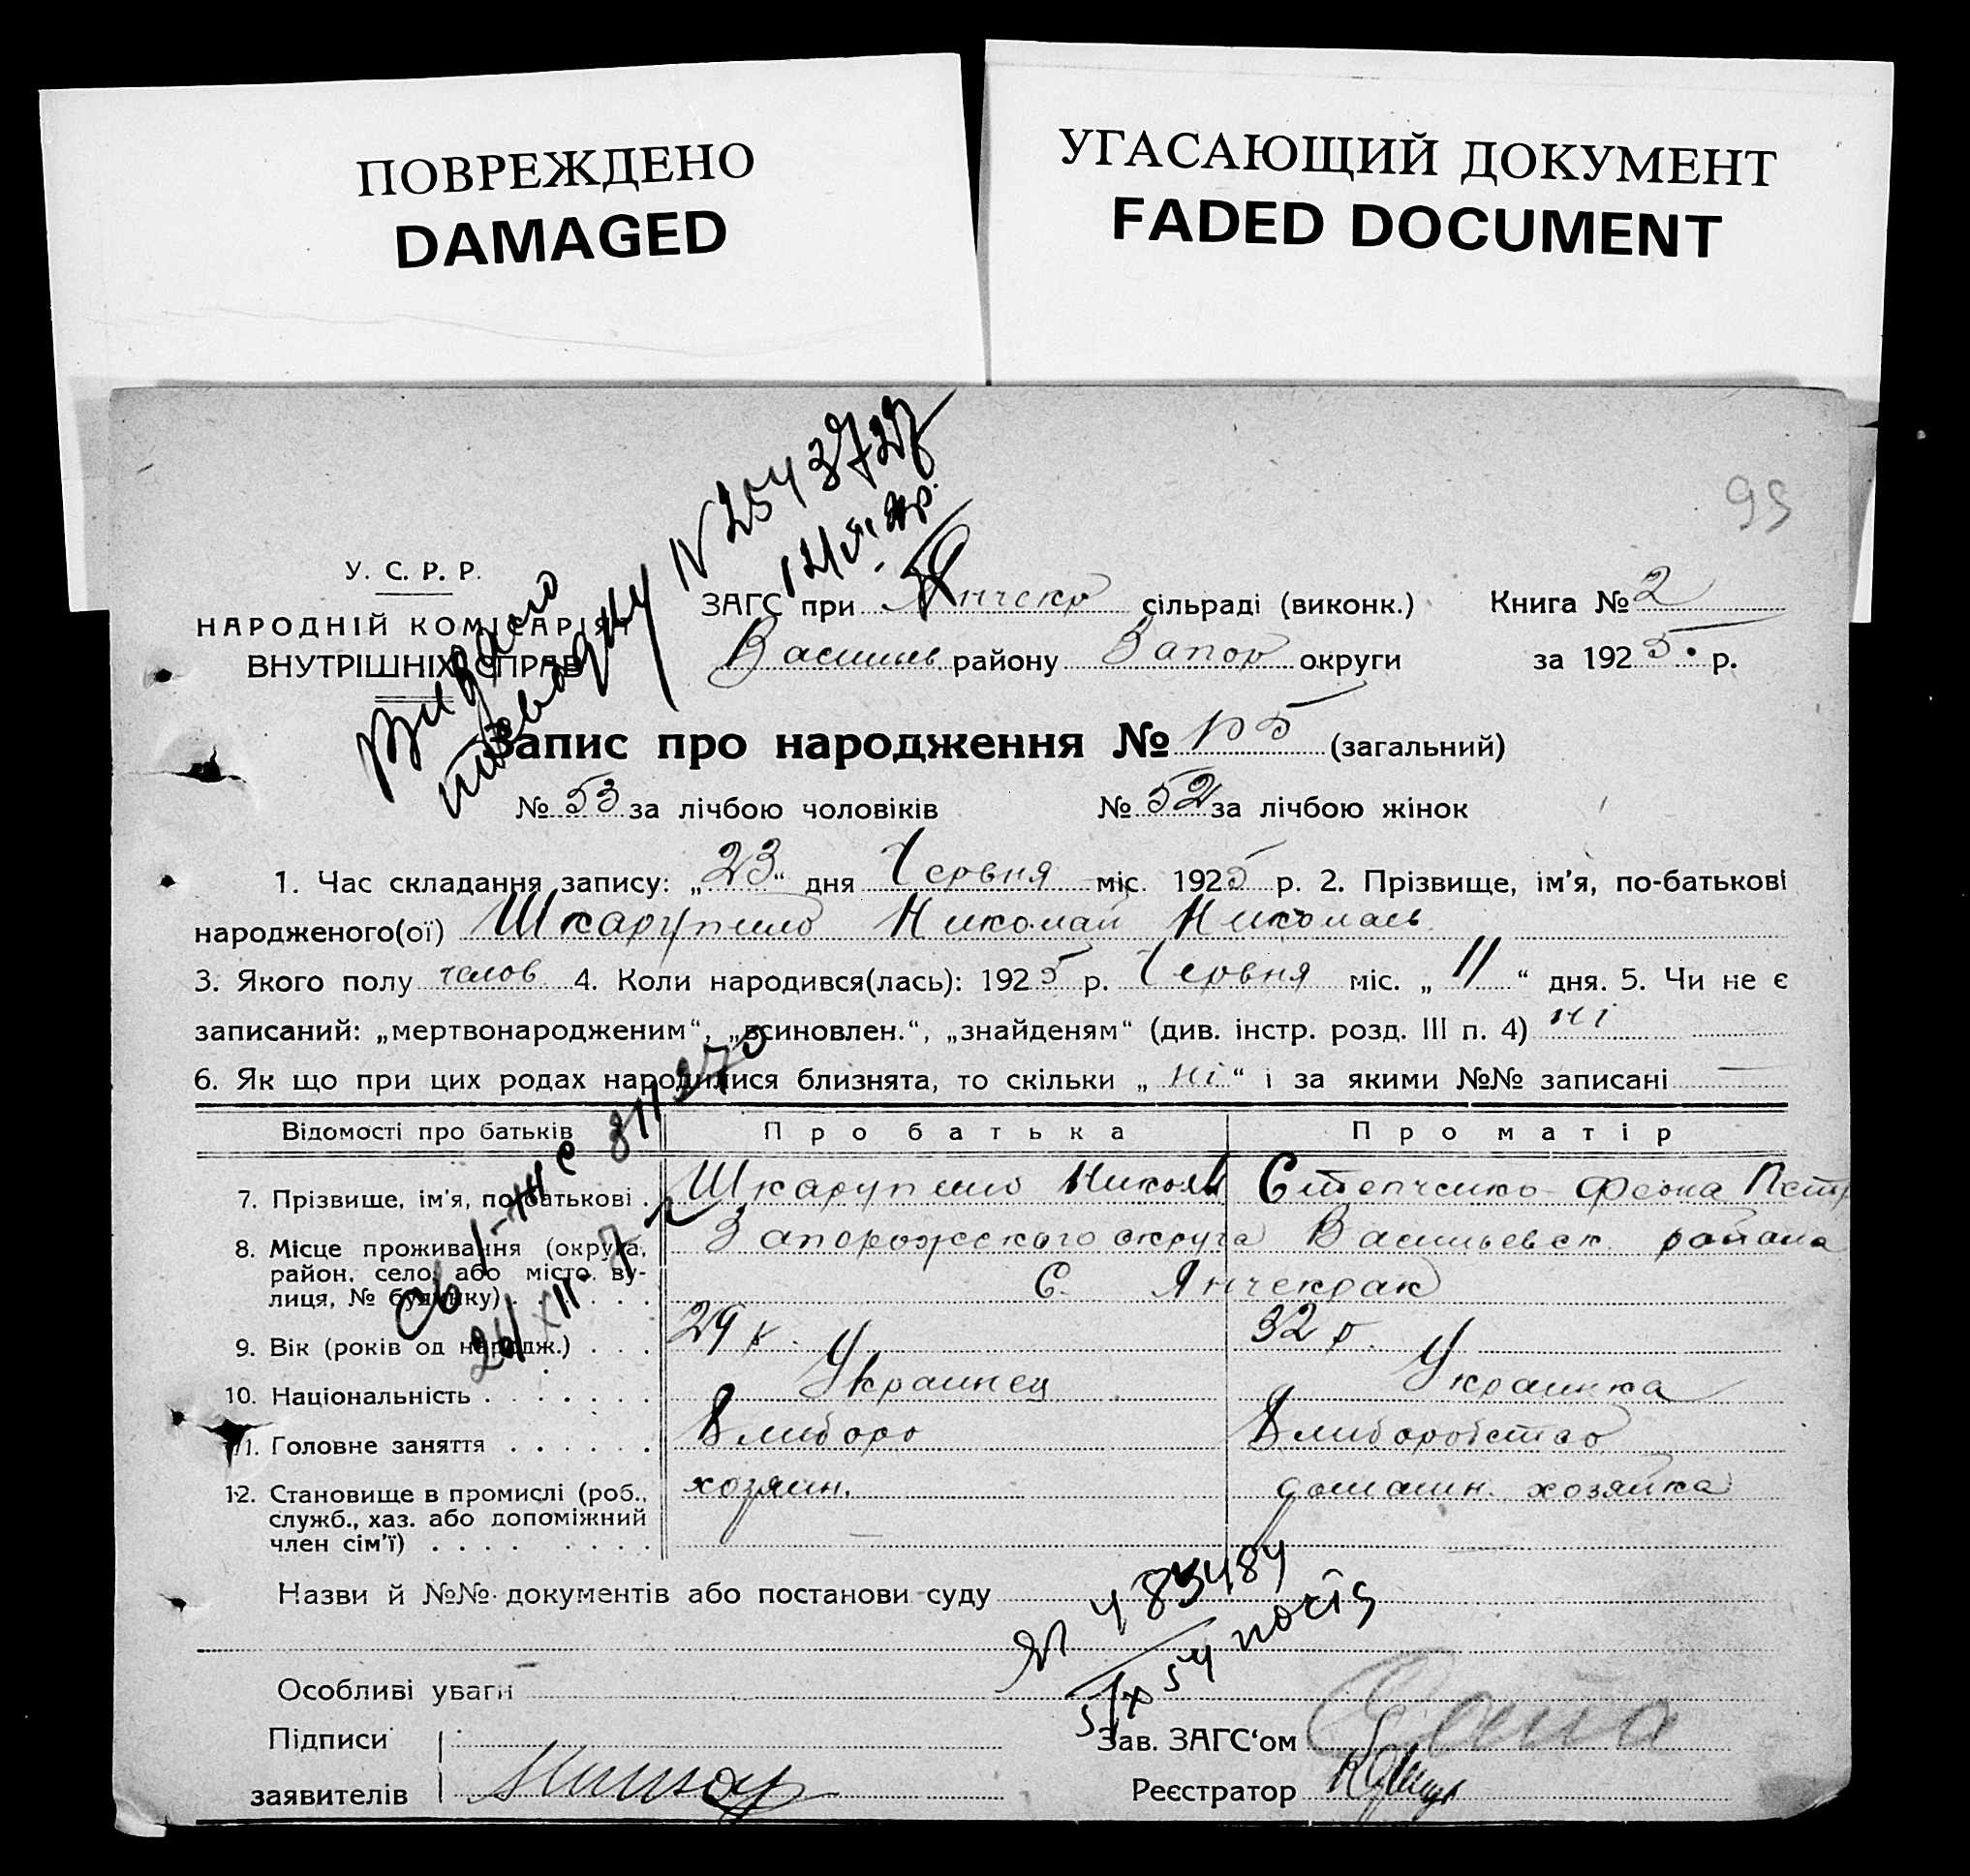 ПОВРЕЖДЕНО
DAMAGED
УГАСАЮЩИЙ ДОКУМЕНТ
FADED DOCUMENT
99
У. С. Р. Р.
НАРОДНІЙ КОМІСАРІЯТ
ВНУТРІШНІХ СПРАВ
Видано
N 2543727
ЗАГС при Янчекр сільраді (виконк.) Книга № 2
Васильев району Запор округи за 1925 р.
Запис про народження № 105 (загальний)
№ 53 за лічбою чоловіків № 52 за лічбою жінок
1. Час складання запису: „23“ дня Червня міс. 1925 р. 2. Прізвище, ім'я, по-батькові
народженого(ої) Шкарупило Николай Николаев
3. Якого полу челов 4. Коли народився(лась): 1925 р. Червня міс. „11“ дня. 5. Чи не є
записаний: „мертвонародженим“, „всиновлен.“, „знайденям“ (див. інстр. розд. III п. 4) ні
6. Як що при цих родах народилися близнята, то скільки „ні“ і за якими №№ записані —
Відомості про батьків Про батька Про матір
7. Прізвище, ім'я, по-батькові . Шкарупило Никол Степченко Феона Петр
8. Місце проживання (округа, Запорожского округа Васильевск района
район, село, або місто, ву-
лиця, № будинку) . . . . . . С. Янчекрак
9. Вік (років од народж.) . . . 29 р. 32 р.
10. Національність . . . . . . . Украинец Украинка
11. Головне заняття . . . . . . Хлиборо Хлиборобство
12. Становище в промислі (роб., хозяин. домашн. хозяйка
служб., хаз. або допоміжний
член сім'ї) . . . . . . . .
Назви й №№ документів або постанови суду
Особливі уваги
Підписи Зав. ЗАГС'ом
заявителів Реєстратор